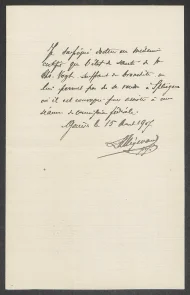 Je soussigné docteur en médecine
certifie que l'état de santé de M
Vogt souffrant de bronchite ne
lui permet pas de se rendre à
où il est convoqué pour assister à une
séance de commission fédérale.
le 15 1907